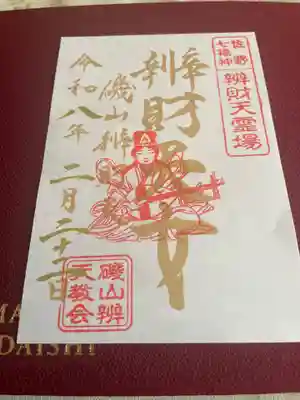 佐野
七福神
辨財天霊場
辨財
磯山辨
令和八年二月二十
磯山辨
天教会
MA
DAISHI